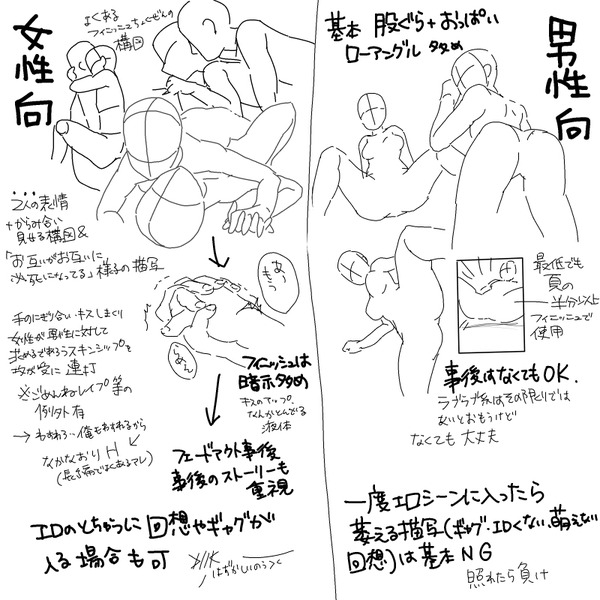 女性向
よくある
フィニッシュちょくぜんの
構図
2人の表情
+からみ合い
見せる構図&
「お互いがお互いに
必死になってる」様子の描写
手のにぎり合い・キスしまくり
女性が男性に対して
求めるであろうスキンシップを
攻が受に連打
※ごめんねレイプ等の
例外有
→
なかなおりH
(長さ病でよくあるアレ)
あっ
もう
フィニッシュは
暗示多め
キスのアップ
なんかとんでる
液体
フェードアウト事後
事後のストーリーも
重視
IDのとちゅうに回想やギャグが
入る場合も可
男性向
基本 股ぐら+おっぱい
ローアングル多め
最低でも
頁の
半分以上
フィニッシュで
使用
事後はなくてもOK.
ラブラブ系はその限りでは
ないとおもうけど
なくても大丈夫
一度エロシーンに入ったら
萎える描写(ギャグ・IDくない、萌えない
回想)は基本NG
照れたら負け